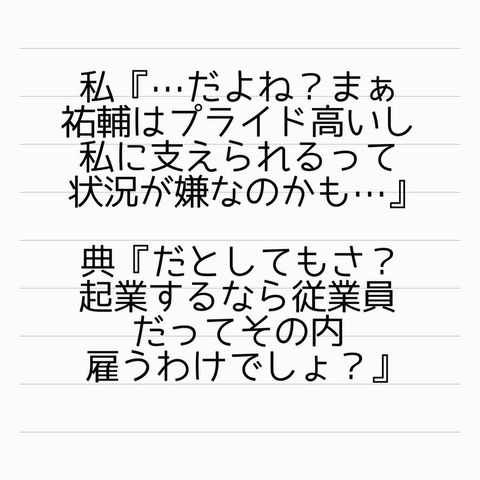 私『…だよね？まぁ
祐輔はプライド高いし
私に支えられるって
状況が嫌なのかも…』
典『だとしてもさ？
起業するなら従業員
だってその内
雇うわけでしょ？』